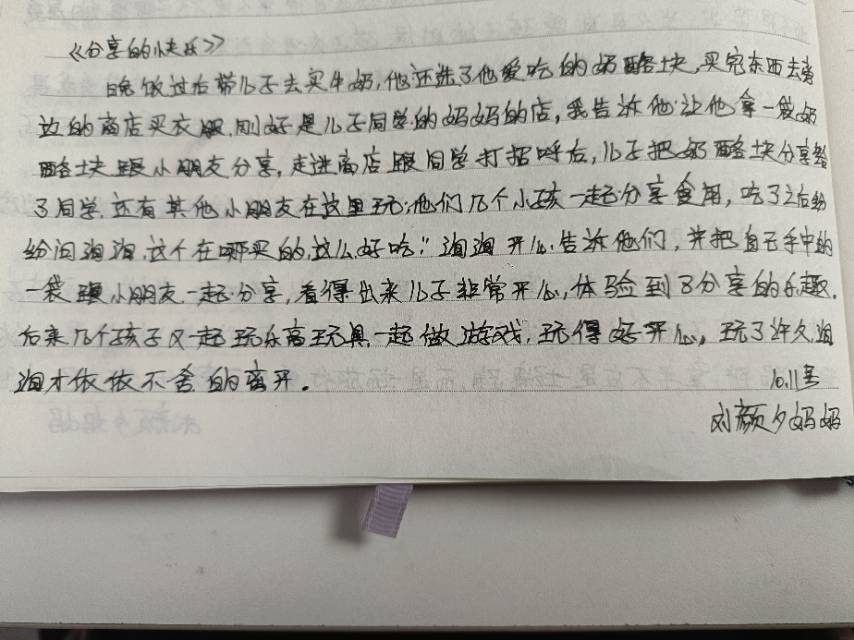 《分享的快乐》
晚饭过后带儿子去买牛奶,他还选了他爱吃的奶酪块,买完东西去旁
边的商店买衣服,刚好是儿子同学的妈妈的店,我告诉他让他拿一袋奶
酪块跟小朋友分享,走进商店跟同学打招呼后,儿子把奶酪块分享给
了同学,还有其他小朋友在这里玩,他们几个小孩一起分享食用,吃了之后纷
纷问淘淘,这个在哪买的,这么好吃!淘淘开心告诉他们,并把自己手中的
一袋跟小朋友一起分享,看得出来儿子非常开心,体验到了分享的乐趣,
后来几个孩子又一起玩乐高玩具,一起做游戏,玩得好开心,玩了许久淘
淘才依依不舍的离开。
10.11号
刘颜夕妈妈